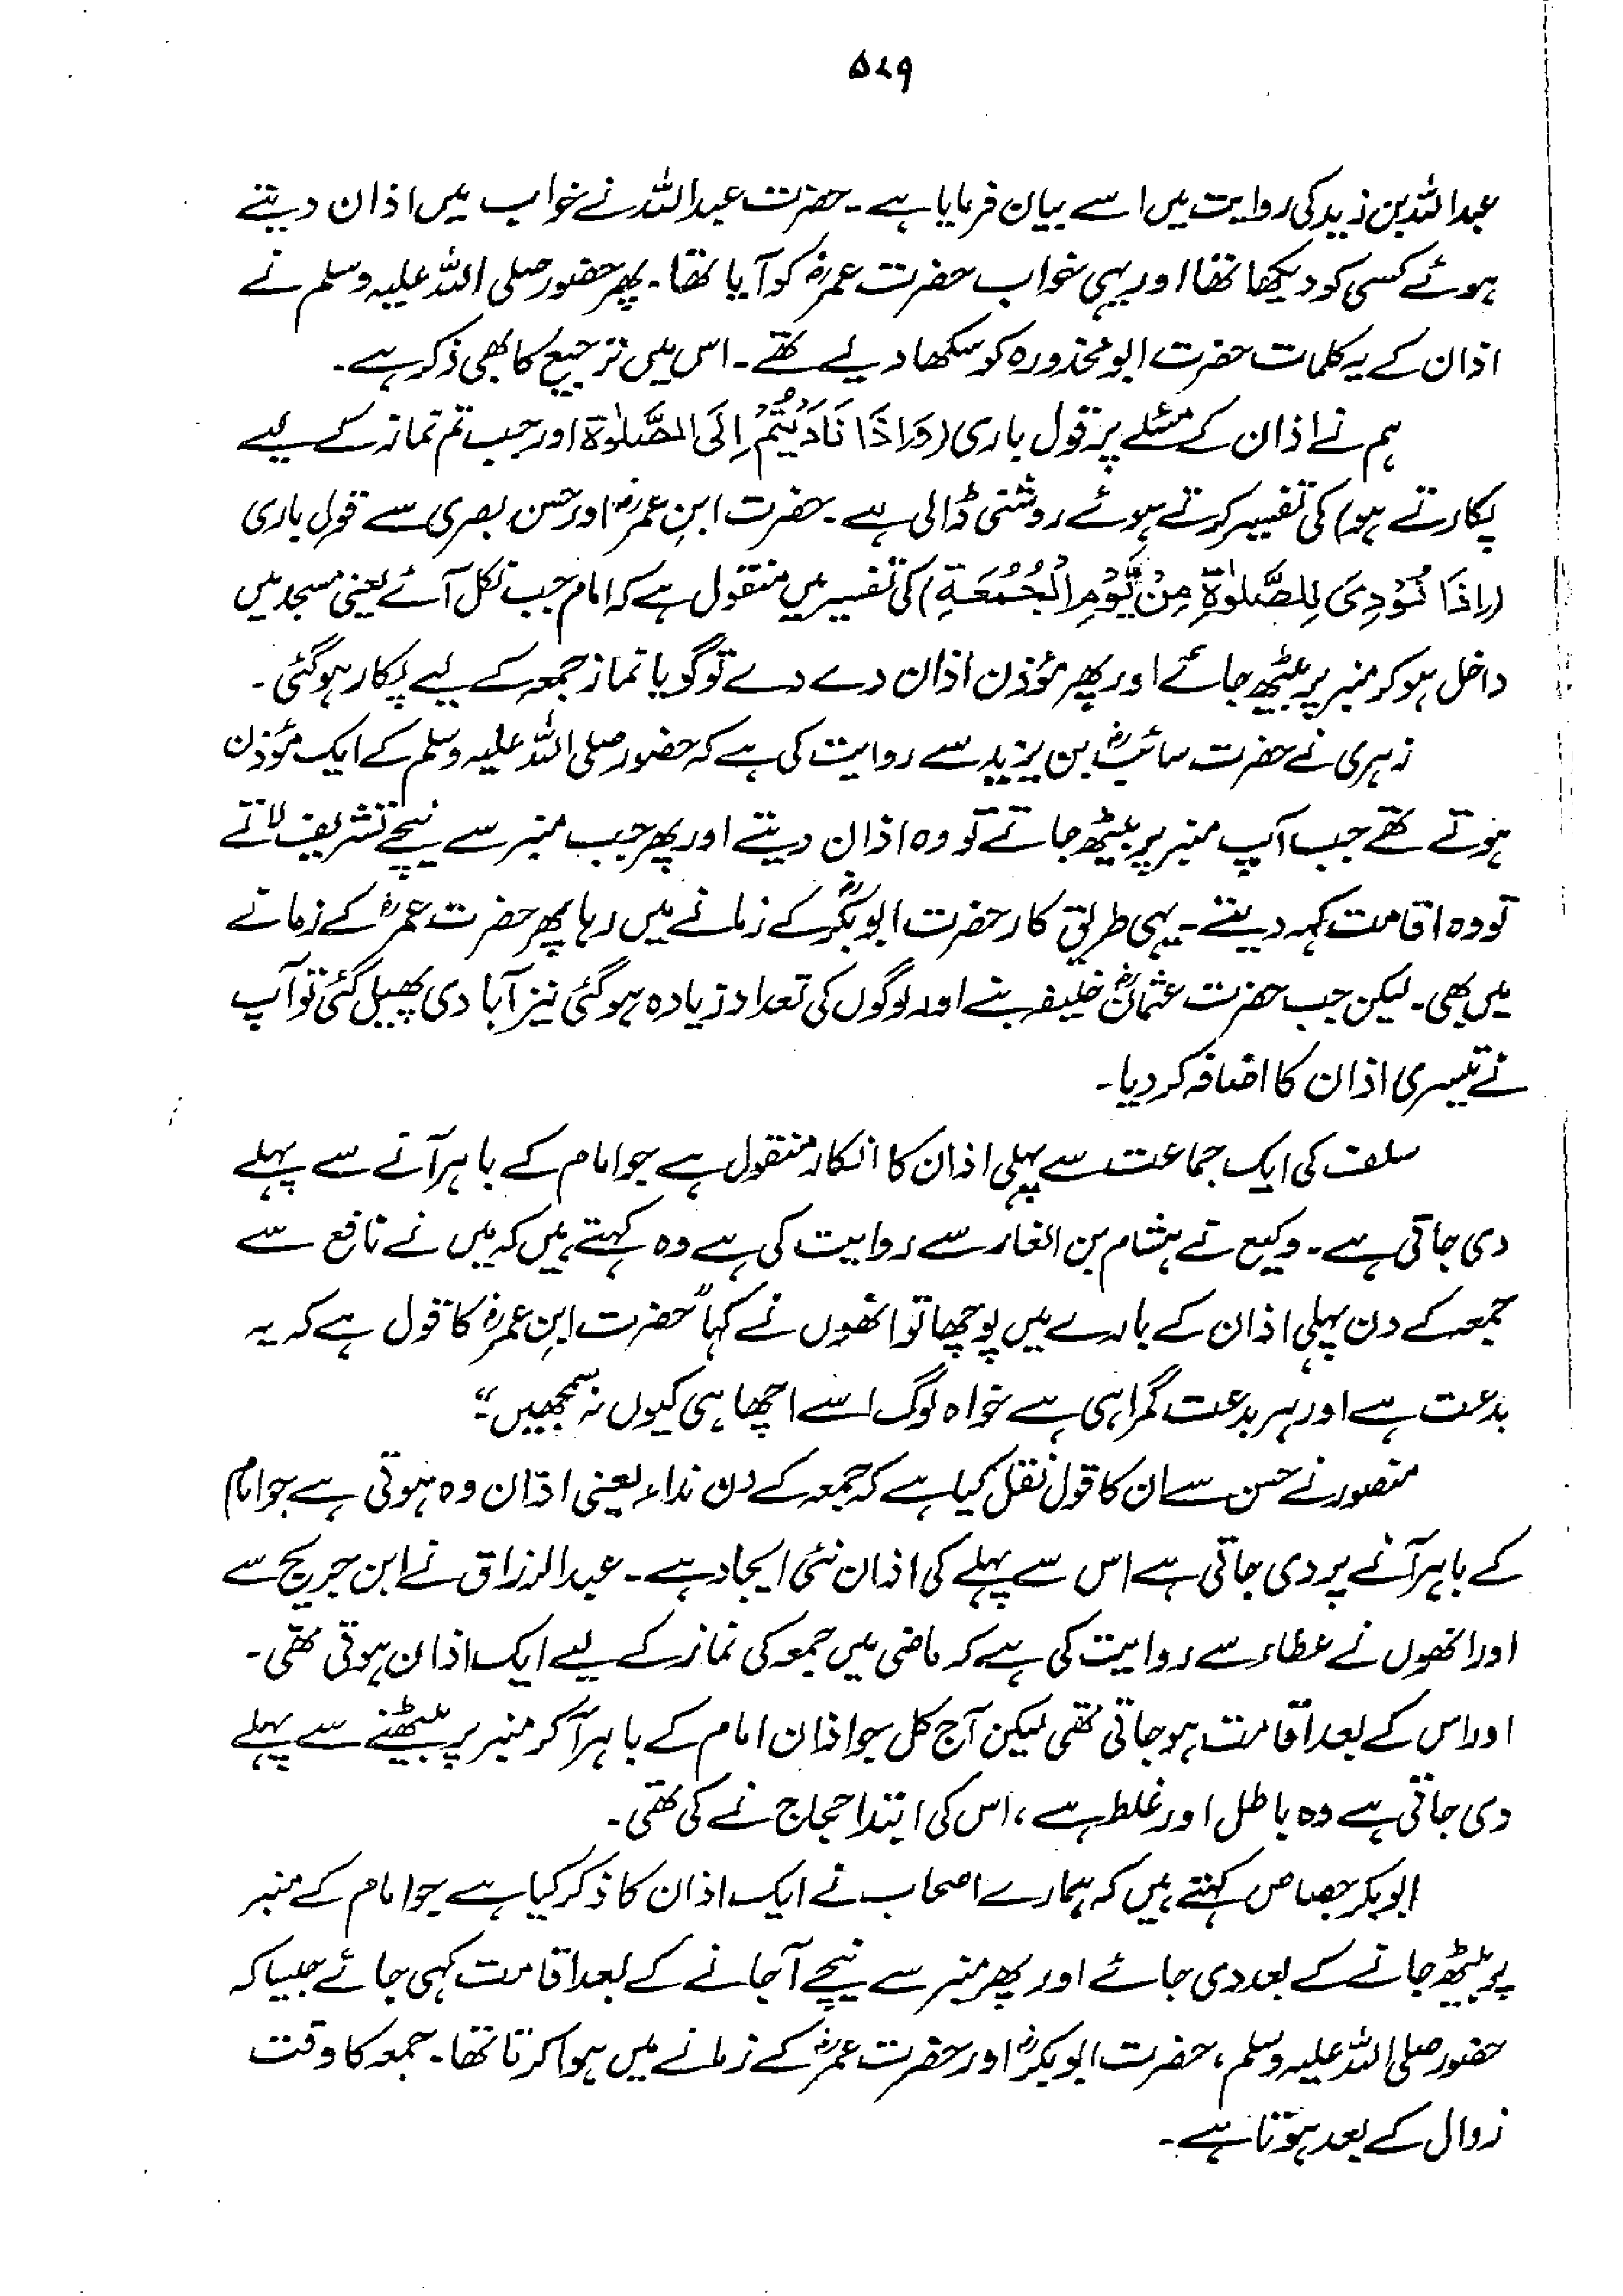 ۵۷۹
عبداللہ بن زید کی روایت میں اسے بیان فرمایا ہے۔ حضرت عبداللہ نے خواب میں اذان دیتے
ہوئے کسی کو دیکھا تھا اور یہی خواب حضرت عمرؓ کو آیا تھا۔ پھر حضور صلی اللہ علیہ وسلم نے
اذان کے یہ کلمات حضرت ابو محذورہ کو سکھا دیے تھے۔ اس میں ترجیع کا بھی ذکر ہے۔
ہم نے اذان کے مسئلے پر قول باری (وَإِذَا نَادَيْتُمْ إِلَى الصَّلٰوةِ اور جب تم نماز کے لیے
پکارتے ہو) کی تفسیر کرتے ہوئے روشنی ڈالی ہے۔ حضرت ابنِ عمرؓ اور حسن بصری سے قول باری
(إِذَا نُوْدِىَ لِلصَّلٰوةِ مِنْ يَّوْمِ الْجُمُعَةِ) کی تفسیر میں منقول ہے کہ امام جب نکل آئے یعنی مسجد میں
داخل ہو کر منبر پر بیٹھ جائے اور پھر مؤذن اذان دے دے تو گویا نماز جمعہ کے لیے پکار ہو گئی۔
زہری نے حضرت سائبؓ بن یزید سے روایت کی ہے کہ حضور صلی اللہ علیہ وسلم کے ایک مؤذن
ہوتے تھے جب آپ منبر پر بیٹھ جاتے تو وہ اذان دیتے اور پھر جب منبر سے نیچے تشریف لاتے
تو وہ اقامت کہہ دیتے۔ یہی طریق کار حضرت ابوبکرؓ کے زمانے میں رہا پھر حضرت عمرؓ کے زمانے
میں بھی۔ لیکن جب حضرت عثمانؓ خلیفہ بنے اور لوگوں کی تعداد زیادہ ہو گئی نیز آبادی پھیل گئی تو آپ
نے تیسری اذان کا اضافہ کر دیا۔
سلف کی ایک جماعت سے پہلی اذان کا انکار منقول ہے جو امام کے باہر آنے سے پہلے
دی جاتی ہے۔ وکیع نے ہشام بن الغار سے روایت کی ہے وہ کہتے ہیں کہ میں نے نافع سے
جمعہ کے دن پہلی اذان کے بارے میں پوچھا تو انھوں نے کہا ”حضرت ابنِ عمرؓ کا قول ہے کہ یہ
بدعت ہے اور ہر بدعت گمراہی ہے خواہ لوگ اسے اچھا ہی کیوں نہ سمجھیں۔“
منصور نے حسن سے ان کا قول نقل کیا ہے کہ جمعہ کے دن نداء یعنی اذان وہ ہوتی ہے جو امام
کے باہر آنے پر دی جاتی ہے اس سے پہلے کی اذان نئی ایجاد ہے۔ عبدالرزاق نے ابن جریج سے
اور انھوں نے عطاء سے روایت کی ہے کہ ماضی میں جمعہ کی نماز کے لیے ایک اذان ہوتی تھی۔
اور اس کے بعد اقامت ہو جاتی تھی لیکن آج کل جو اذان امام کے باہر آ کر منبر پر بیٹھنے سے پہلے
دی جاتی ہے وہ باطل اور غلط ہے، اس کی ابتدا حجاج نے کی تھی۔
ابوبکر جصاص کہتے ہیں کہ ہمارے اصحاب نے ایک اذان کا ذکر کیا ہے جو امام کے منبر
پر بیٹھ جانے کے بعد دی جائے اور پھر منبر سے نیچے آ جانے کے بعد اقامت کہی جائے جیسا کہ
حضور صلی اللہ علیہ وسلم، حضرت ابوبکرؓ اور حضرت عمرؓ کے زمانے میں ہوا کرتا تھا۔ جمعہ کا وقت
زوال کے بعد ہوتا ہے۔